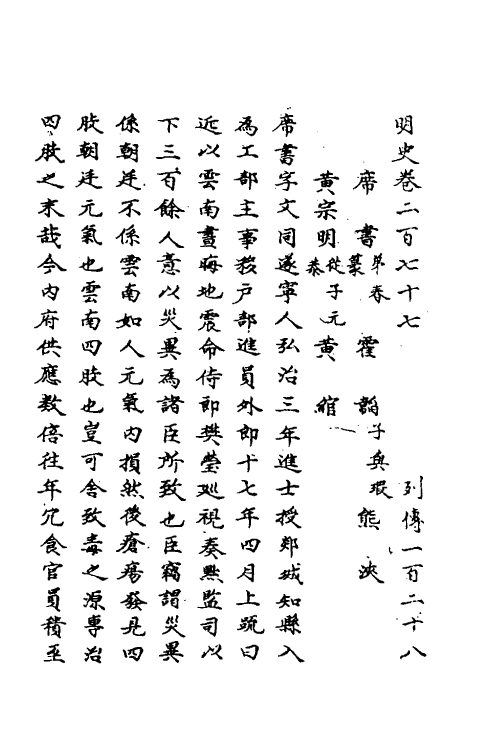 明史卷二百七十七　列傳一百二十八
席書弟春　篆　霍韜子與瑕　熊浹
黃宗明從子元恭　黃綰
席書字文同遂寧人弘治三年進士授郯城知縣入
為工部主事移戶部進員外郎十七年四月上䟽曰
近以雲南晝晦地震命侍郎樊瑩巡視奏黜監司以
下三百餘人意以災異為諸臣所致也臣竊謂災異
係朝廷不係雲南如人元氣內損然後瘡瘍發見四
肢朝廷元氣也雲南四肢也豈可舍致毒之源專治
四肢之末哉今內府供應數倍往年冗食官員積至